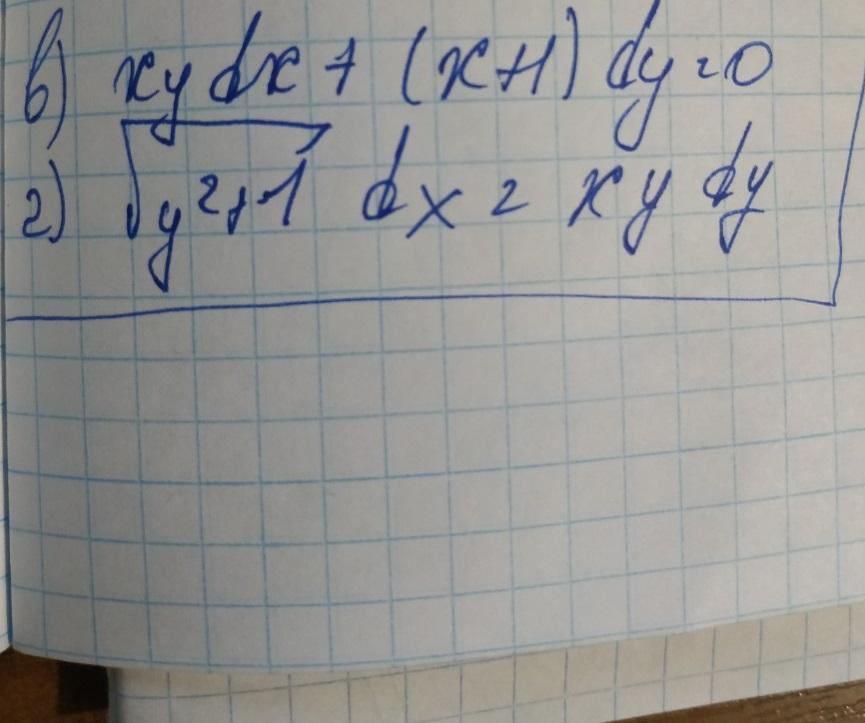 в) xy dx + (x+1) dy = 0
г) √(y²+1) dx = xy dy